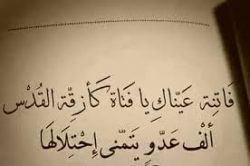 فَاتِنة عَيّناكِ يا فَتاة كَأزقِة القُدْس
ألْف عَدُّو يَتمّنى إحْتِلالهَا